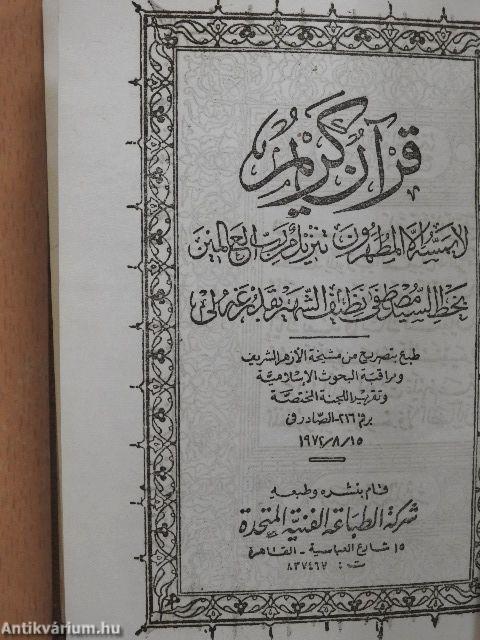 قرآن كريم
لا يمسه إلا المطهرون تنزيل من رب العالمين
بخط السيد مصطفى نظيف الشهير بقدرغه لى
طبع بتصريح من مشيخة الأزهر الشريف
ومراقبة البحوث الإسلامية
وتقرير اللجنة المختصة
برقم ٢١٦ الصادر في
١٩٧٢/٨/١٥
قام بنشره وطبعه
شركة الطباعة الفنية المتحدة
١٥ شارع العباسية - القاهرة
ت : ٨٣٧٤٦٧
Antikvárium.hu